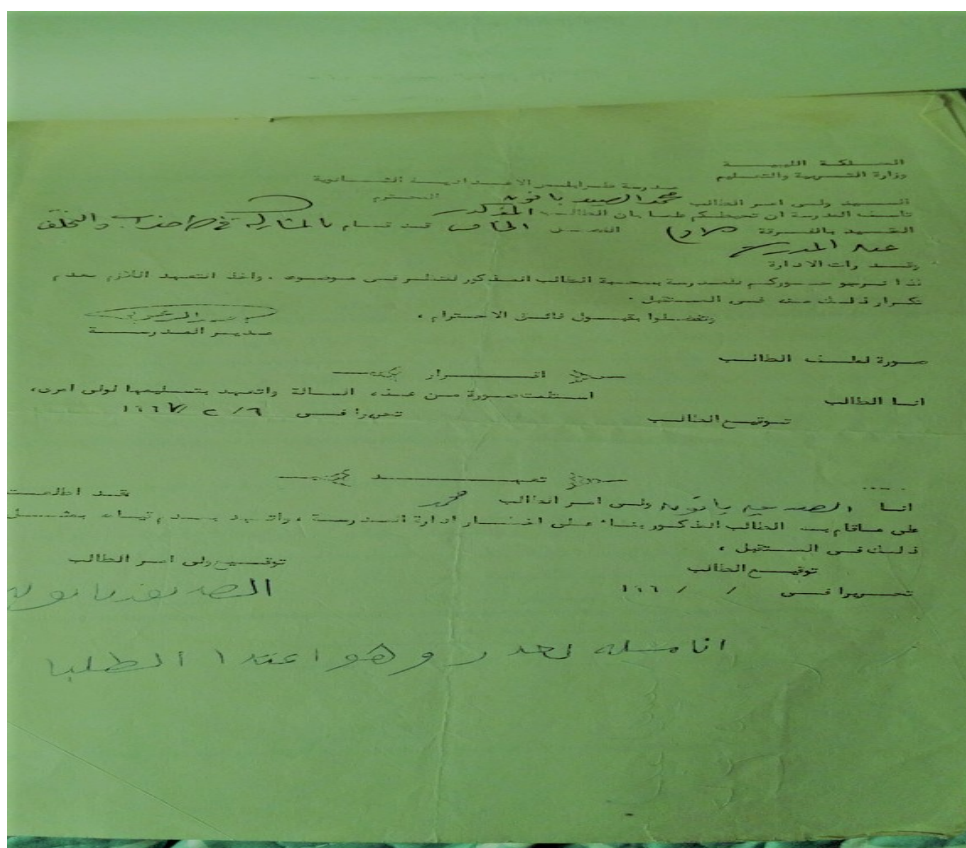 المملكة الليبية
وزارة التربية والتعليم
مدرسة طرابلس الاعدادية الثانوية
السيد ولى امر الطالب محمد الصيد يانون المحترم
تأسف المدرسة ان تحيطكم علما بان الطالب المذكور
المقيد بالفرقة الفصل قد قام بالمشاركة في اضراب والتخلف
عن المدرسة
وقد رأت الادارة
لذا نرجو حضوركم للمدرسة بصحبة الطالب المذكور للنظر فى موضوعه ، واخذ التعهد اللازم بعدم
تكرار ذلك منه فى المستقبل .
وتفضلوا بقبول فائق الاحترام ،
مدير المدرسة
صورة لملف الطالب
اقرار
انا الطالب استلمت صورة من هذه الرسالة واتعهد بتسليمها لولى امرى،
توقيع الطالب تحريرا فى ٦/ ٢ /١٩٦٧
تعهد
انا ولى امر الطالب محمد قد اطلعت
على ماقام به الطالب المذكور بناء على اخطار ادارة المدرسة ، واتعهد بعدم قيامه بمثل
ذلك فى المستقبل ،
توقيع الطالب توقيع ولى امر الطالب
تحريرا فى / / ١٩٦
وهو الطلبا